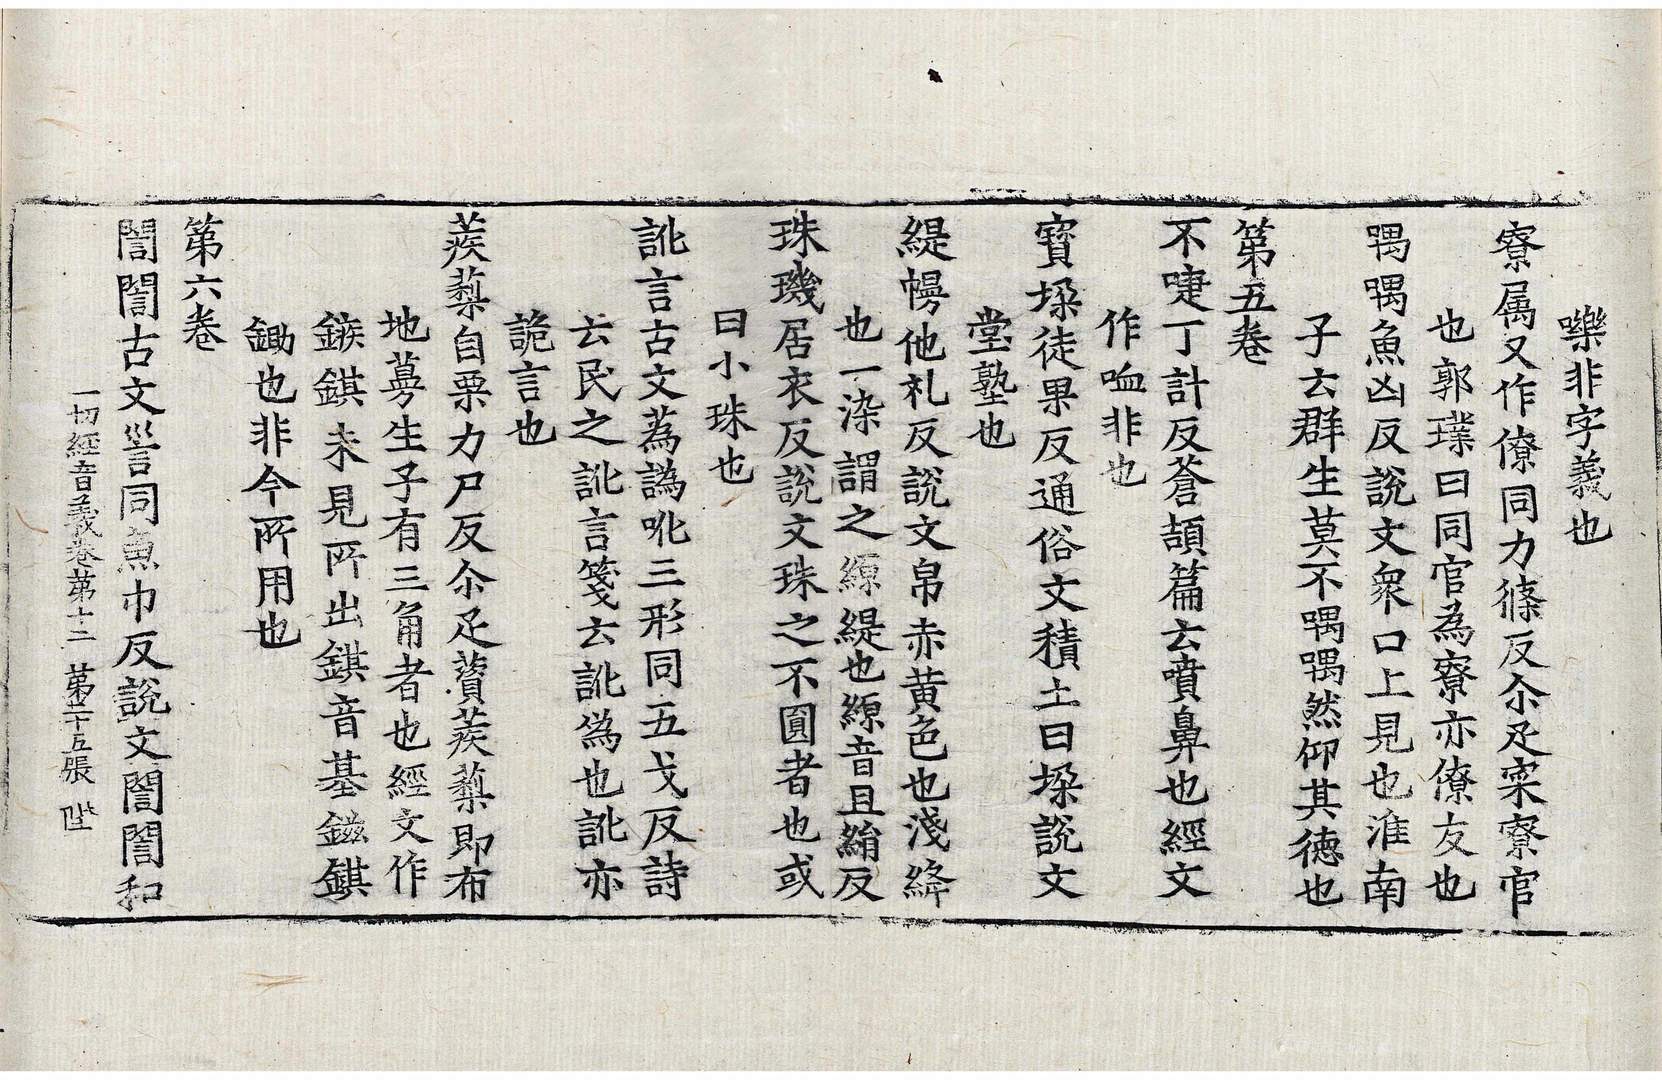 㗚非字義也
寮属又作僚同力條反尒疋寀寮官
也郭璞曰同官為寮亦僚友也
喁喁魚凶反說文衆口上見也淮南
子云群生莫不喁喁然仰其德也
第五卷
不㖑丁計反蒼頡篇云噴鼻也經文
作㖶非也
寶垜徒果反通俗文積土曰垜說文
堂塾也
緹幔他礼反說文帛赤黄色也淺絳
也一染謂之縓緹也縓音且絹反
珠璣居衣反說文珠之不圓者也或
曰小珠也
訛言古文蒍譌吪三形同五戈反詩
云民之訛言箋云訛為也訛亦
詭言也
蒺䔧自栗力尸反尒疋薋蒺䔧即布
地蔓生子有三角者也經文作
鏃錤未見所出錤音基鎡錤
鋤也非今所用也
第六卷
誾誾古文訔同魚巾反說文誾誾和
一切經音義卷第十二 第三十五張 陛